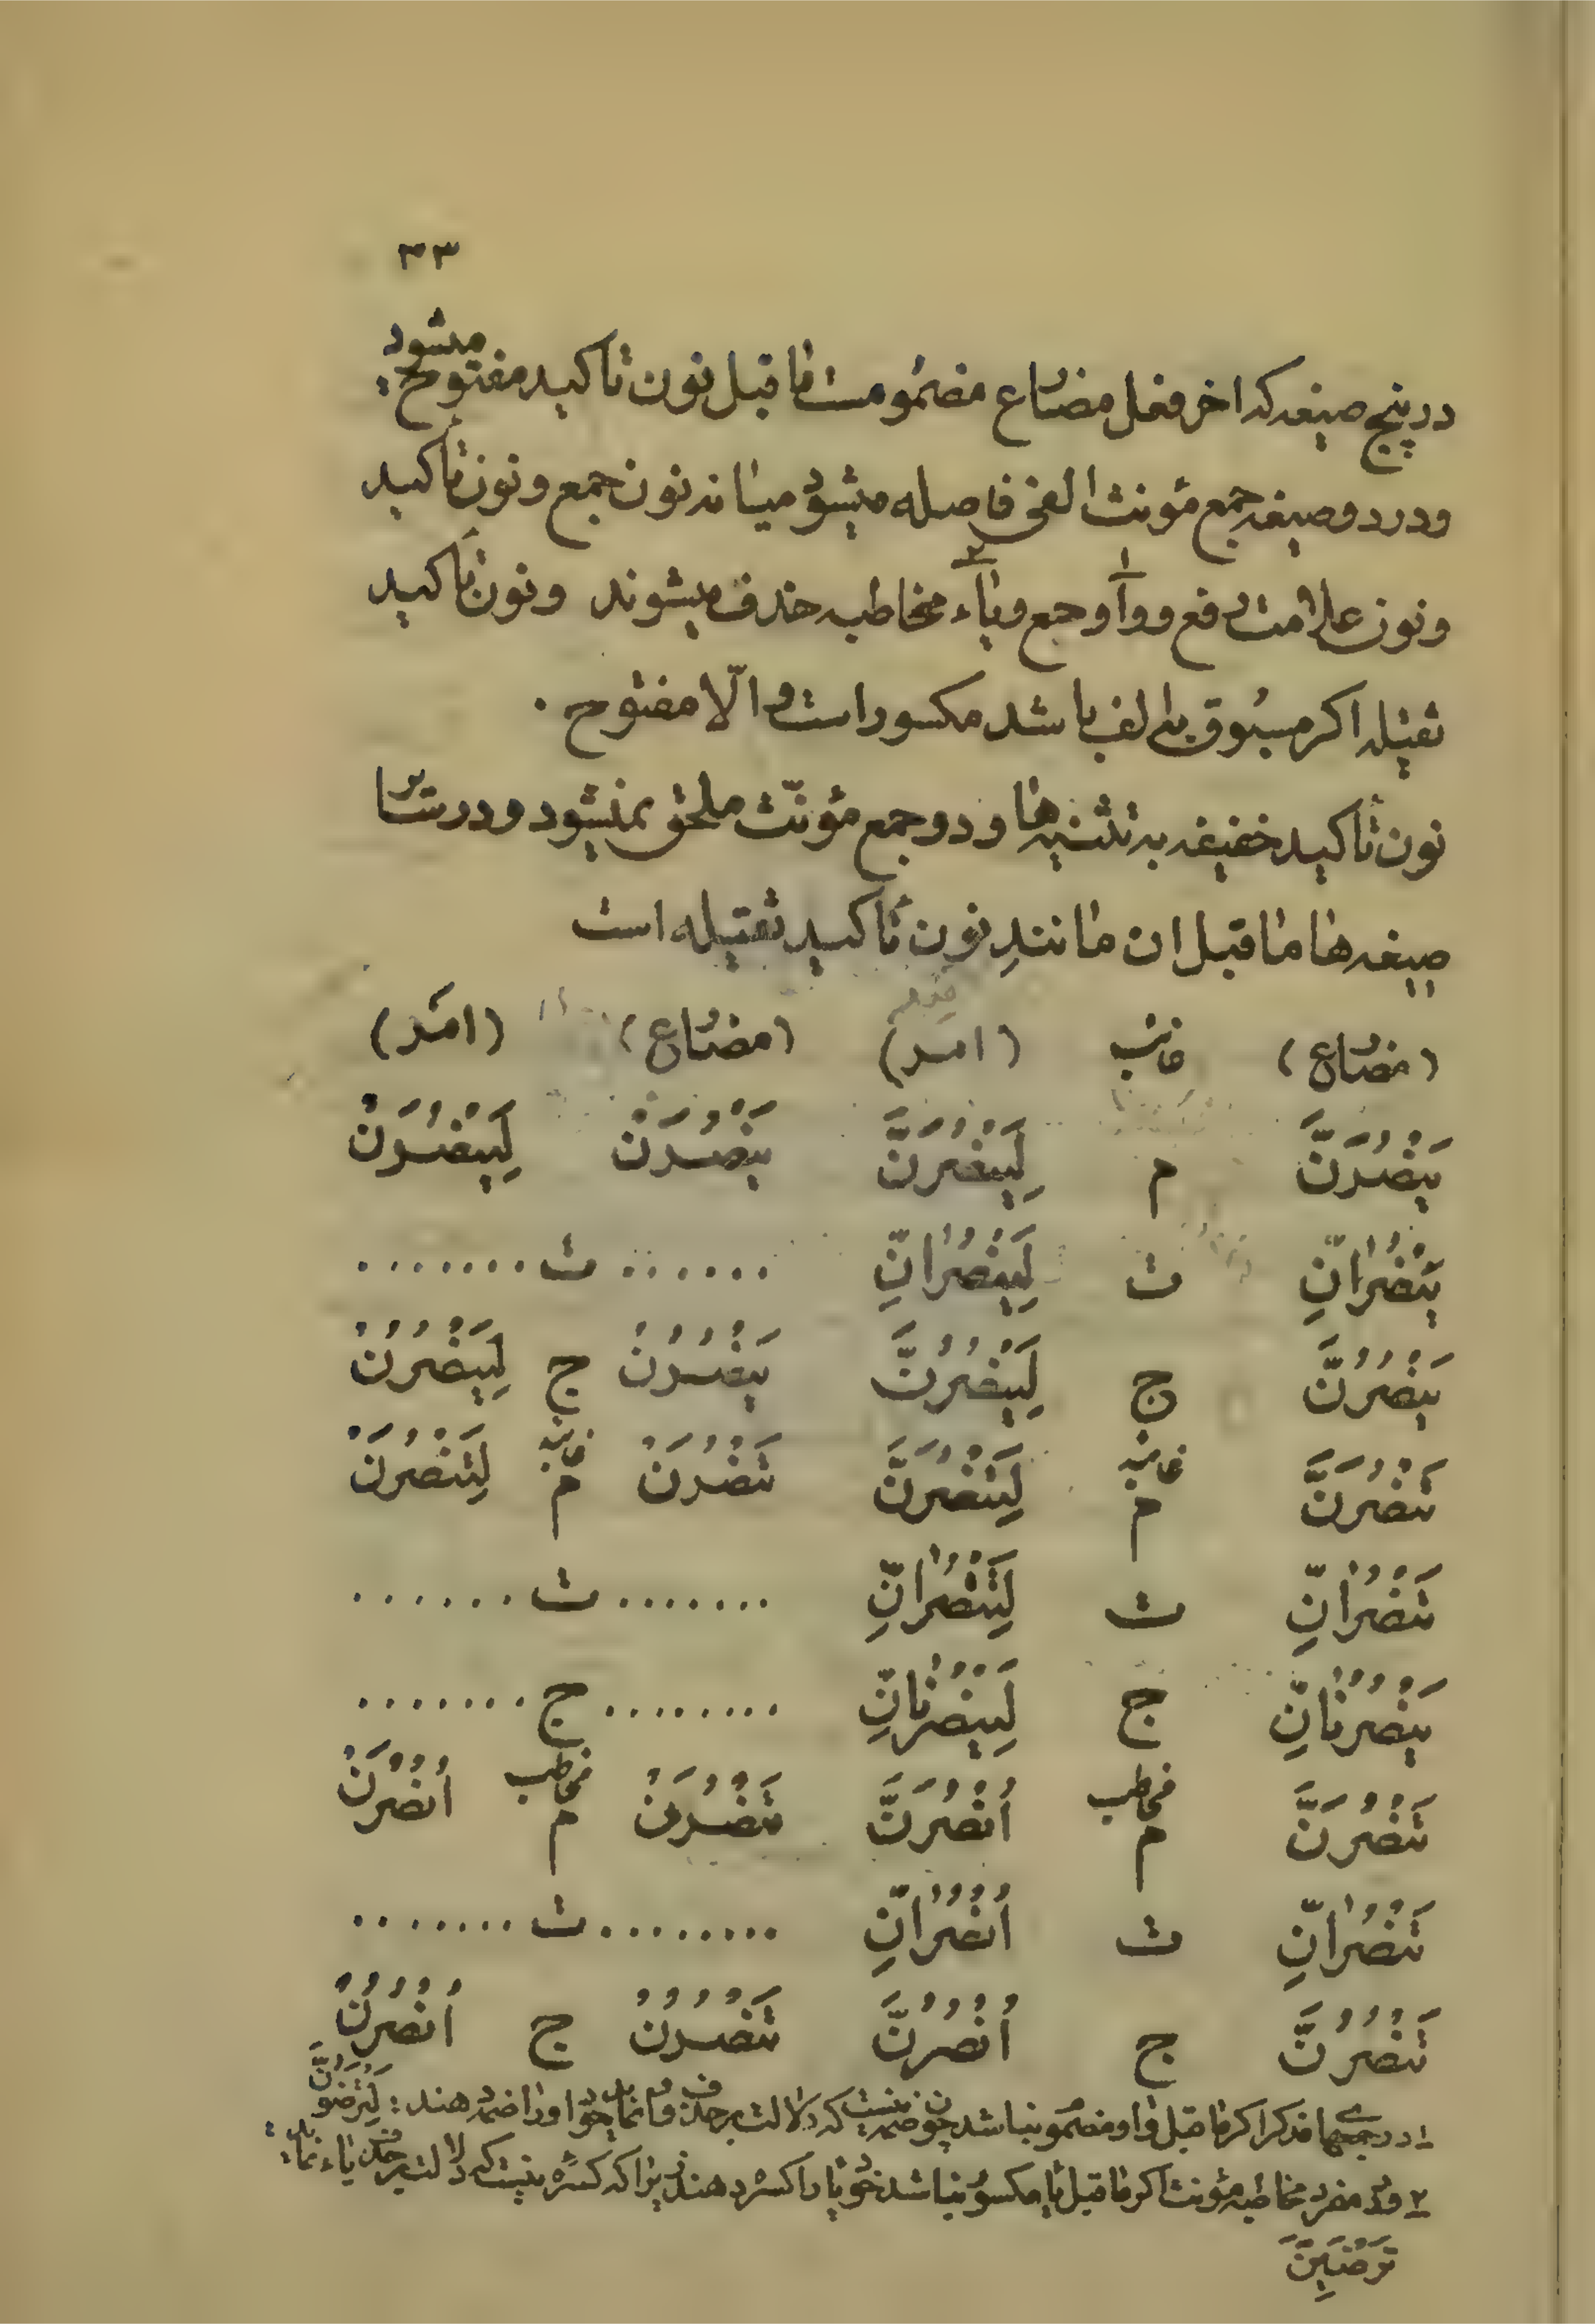 ۳۳
در پنج صیغه که اخر فعل مضارع مضمومست ما قبل نون تاکید مفتوح میشود
و در دو صیغه جمع مؤنث الفی فاصله میشود میانه نون جمع و نون تأکید
و نون علامت رفع و واو جمع و یاء مخاطبه حذف میشوند و نون تأکید
ثقیله اکر مسبوق بالف باشد مکسور است و الّا مفتوح .
نون تأکید خفیفه به تثنیه ها و دو جمع مؤنّث ملحق نمیشود و در سایر
صیغه ها ما قبل ان مانندِ نون تأکید ثقیله است
(مضارع) غائب (امر) (مضارع) (امر)
يَنْصُرَنَّ م لِيَنْصُرَنَّ يَنْصُرَنْ لِيَنْصُرَنْ
يَنْصُرَانِّ ث لِيَنْصُرَانِّ ...... ث .......
يَنْصُرُنَّ ج لِيَنْصُرُنَّ يَنْصُرُنْ ج لِيَنْصُرُنْ
تَنْصُرَنَّ غائبه م لِتَنْصُرَنَّ تَنْصُرَنْ غائبه م لِتَنْصُرَنْ
تَنْصُرَانِّ ث لِتَنْصُرَانِّ ....... ث ......
يَنْصُرْنَانِّ ج لِيَنْصُرْنَانِّ ........ ج .......
تَنْصُرَنَّ مخاطب م اُنْصُرَنَّ تَنْصُرَنْ مخاطب م اُنْصُرَنْ
تَنْصُرَانِّ ث اُنْصُرَانِّ ........ ث .......
تَنْصُرُنَّ ج اُنْصُرُنَّ تَنْصُرُنْ ج اُنْصُرُنْ
۱- در جمعهای مذکر اکر ما قبل واو مضموم نباشد چون ضمه نیست که دلالت بر حذف واو نماید خود واو را ضمه دهند : لِتَرْضَوُنَّ
۲- و در مفرد مخاطبه مؤنث اکر ما قبل یا مکسور نباشد خود یا را کسره دهند زیرا که کسره نیست که دلالت بر حذف یاء نماید :
تَرْضَيِنَّ